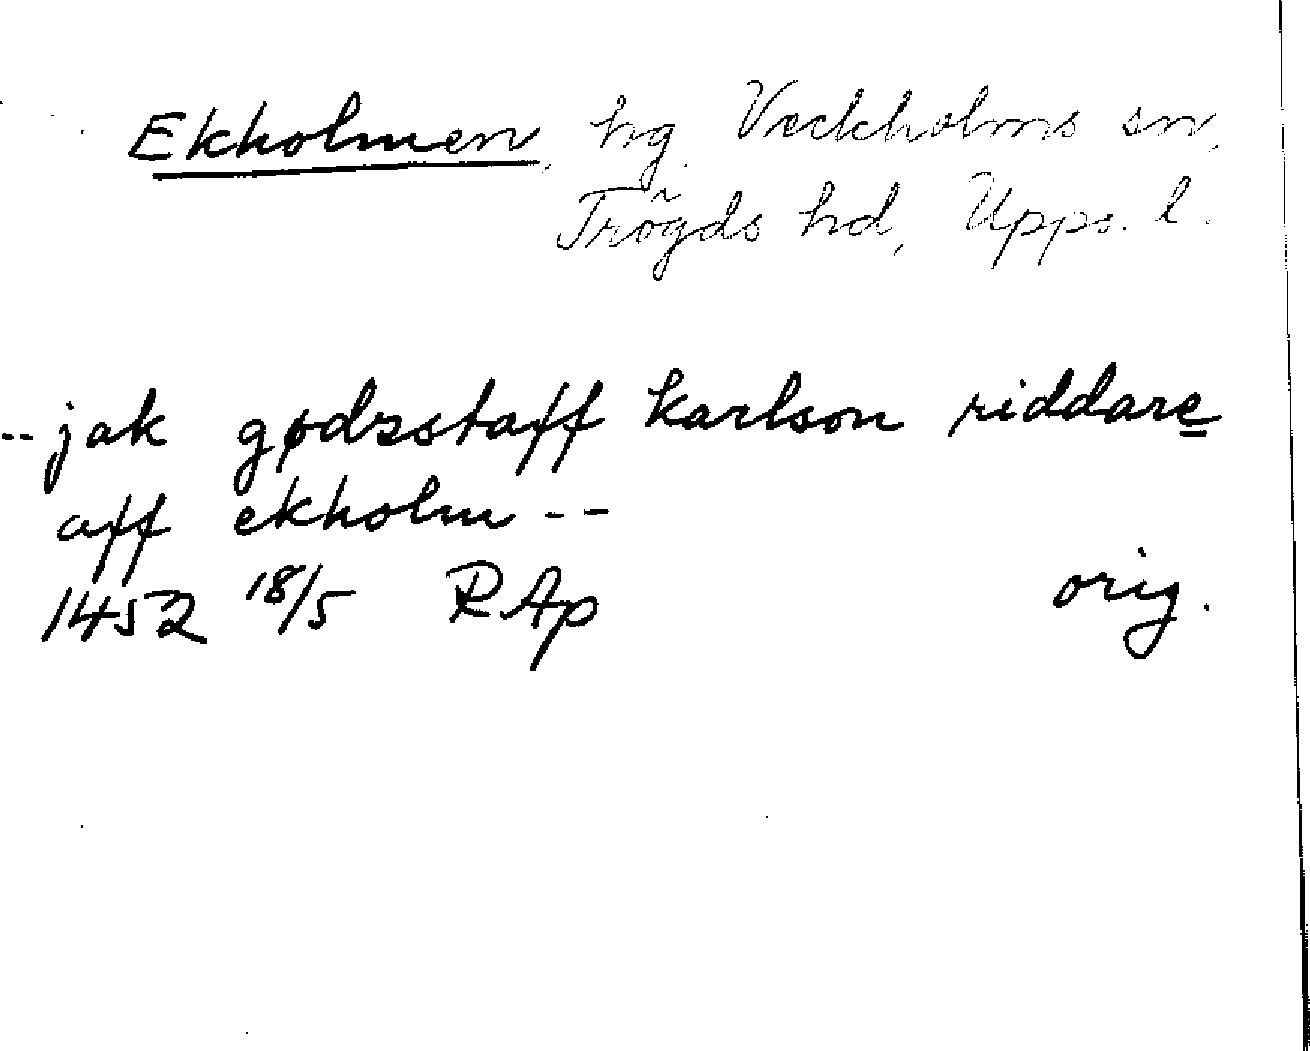 Ekholmen, hg. Veckholms sn,
Trögds hd, Upps. l.
--jak gødzstaff karlson riddare
aff ekholm--
1452 18/5 RAp orig.